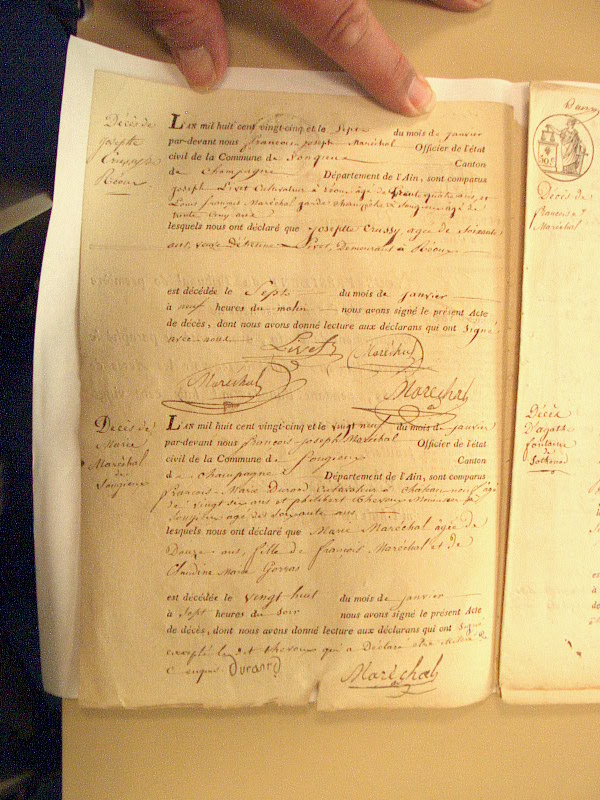 Décès de
Josephte
Crussy
Réoux
L'AN mil huit cent vingt-cinq et le Sept du mois de janvier
par-devant nous françois joseph Maréchal Officier de l'état
civil de la Commune de Songieu Canton
de champagne Département de l'Ain, sont comparus
joseph Livet Cultivateur à réoux âgé de trente quatre ans, et
Louis françois Maréchal garde champêtre à Songieu âgé de
trente cinq ans
lesquels nous ont déclaré que josephte Crussy, agée de Soixante
ans, veuve d'étienne Livet, Demeurant à Réoux
est décédée le Sept du mois de janvier
à neuf heures du matin nous avons signé le présent Acte
de décès, dont nous avons donné lecture aux déclarans qui ont Signé
avec nous.
Livet Maréchal
Maréchal Marechal
Décès de
Marie
Maréchal
de
Songieu
L'AN mil huit cent vingt-cinq et le vingt neuf du mois de janvier
par-devant nous françois joseph Maréchal Officier de l'état
civil de la Commune de Songieu Canton
de champagne Département de l'Ain, sont comparus
françois Marie Durand Cultivateur à chateauneuf âgé
de vingt six ans et philibert Thevoux
Songieu agé de Soixante ans,
lesquels nous ont déclaré que Marie Maréchal âgée de
Douze ans, fille de françois Maréchal et de
Claudine Marie Gorras
est décédée le vingt huit du mois de janvier
à sept heures du soir nous avons signé le présent Acte
de décès, dont nous avons donné lecture aux déclarans qui ont Signé
excepté le dit thevoux qui a Déclaré être illitéré de
ce enquis Durand
Maréchal
Décès de
francois
Maréchal
Décès
D'agathe
fontaine
Lochieu